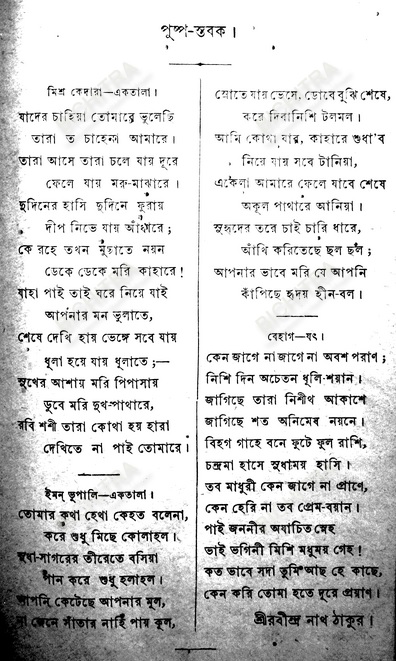 পুষ্প-স্তবক।
মিশ্র কেদারা—একতালা।
যাদের চাহিয়া তোমারে ভুলেছি
তারা ত চাহেনা আমারে।
তারা আসে তারা চলে যায় দূরে
ফেলে যায় মরু-মাঝারে।
দুদিনের হাসি দুদিনে ফুরায়
দীপ নিভে যায় আঁধারে;
কে রহে তখন মুছাতে নয়ন
ডেকে ডেকে মরি কাহারে!
যাহা পাই তাই ঘরে নিয়ে যাই
আপনার মন ভুলাতে,
শেষে দেখি হায় ভেঙ্গে সবে যায়
ধূলা হয়ে যায় ধূলাতে;—
সুখের আশায় মরি পিপাসায়
ডুবে মরি দুখ-পাথারে,
রবি শশী তারা কোথা হয় হারা
দেখিতে না পাই তোমারে।
ইমন্ ভূপালি—একতালা।
তোমার কথা হেথা কেহত বলেনা,
করে শুধু মিছে কোলাহল।
সুধা-সাগরের তীরেতে বসিয়া
পান করে শুধু হলাহল।
আপনি কেটেছে আপনার মূল,
না জেনে সাঁতার নাহি পায় কূল,
স্রোতে যায় ভেসে, ডোবে বুঝি শেষে,
করে দিবানিশি টলমল।
আমি কোথা যাব, কাহারে শুধাব
নিয়ে যায় সবে টানিয়া,
একেলা আমারে ফেলে যাবে শেষে
অকূল পাথারে আনিয়া।
সুহৃদের তরে চাই চারি ধারে,
আঁখি করিতেছে ছল ছল;
আপনার ভাবে মরি যে আপনি
কাঁপিছে হৃদয় হীন-বল।
বেহাগ—যৎ।
কেন জাগে না জাগে না অবশ পরাণ;
নিশি দিন অচেতন ধূলি-শয়ান।
জাগিছে তারা নিশীথ আকাশে
জাগিছে শত অনিমেষ নয়নে।
বিহগ গাহে বনে ফুটে ফুল রাশি,
চন্দ্রমা হাসে সুধাময় হাসি।
তব মাধুরী কেন জাগে না প্রাণে,
কেন হেরি না তব প্রেম-বয়ান।
পাই জননীর অযাচিত স্নেহ
ভাই ভগিনী মিশি মধুময় গেহ!
কত ভাবে সদা তুমি আছ হে কাছে,
কেন করি তোমা হতে দূরে প্রয়াণ।
শ্রীরবীন্দ্র নাথ ঠাকুর।